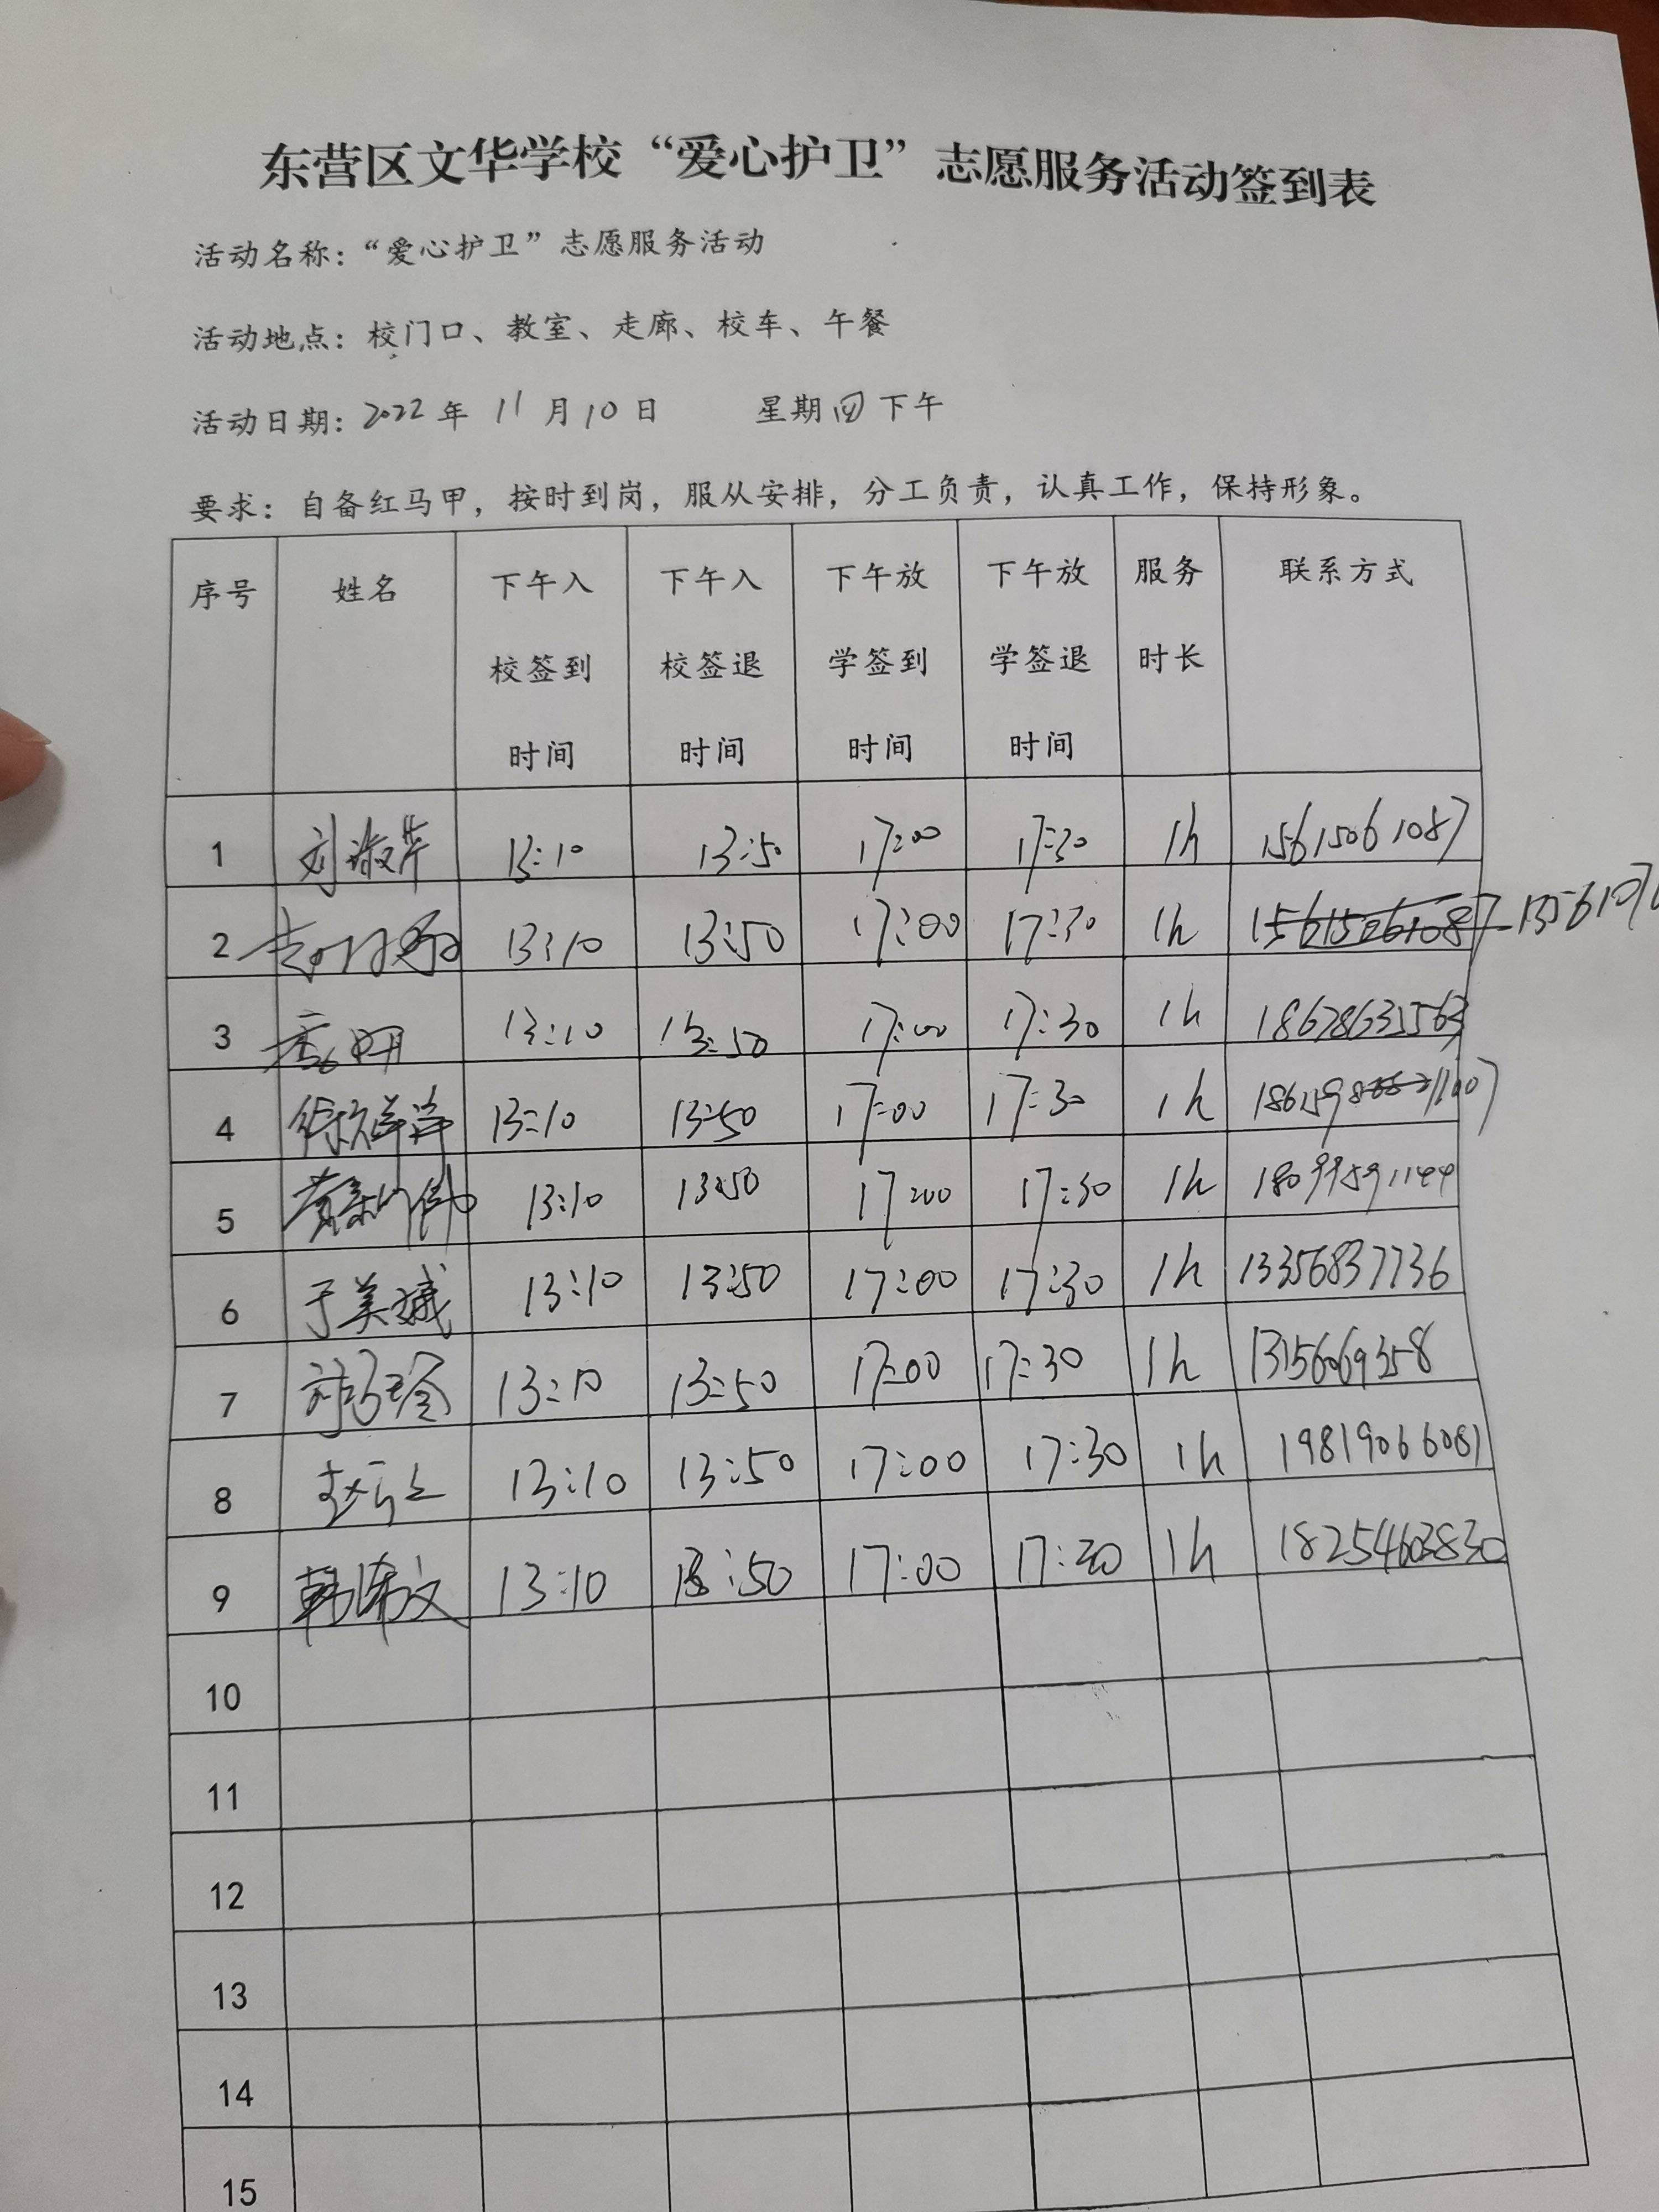 东营区文华学校“爱心护卫”志愿服务活动签到表
活动名称：“爱心护卫”志愿服务活动
活动地点：校门口、教室、走廊、校车、午餐
活动日期：2022年 11月10日 星期四下午
要求：自备红马甲，按时到岗，服从安排，分工负责，认真工作，保持形象。
序号 姓名 下午入校签到时间 下午入校签退时间 下午放学签到时间 下午放学签退时间 服务时长 联系方式
1 刘淑芹 13:10 13:50 17:00 17:30 1h 15615061087
2 13:10 13:50 17:00 17:30 1h 15615061087
3 13:10 13:50 17:00 17:30 1h
4 徐祥祥 13:10 13:50 17:00 17:30 1h
5 13:10 13:50 17:00 17:30 1h
6 于美斌 13:10 13:50 17:00 17:30 1h 13356837736
7 13:10 13:50 17:00 17:30 1h
8 13:10 13:50 17:00 17:30 1h 19819066081
9 韩沛文 13:10 13:50 17:00 17:30 1h 18254603830
10
11
12
13
14
15